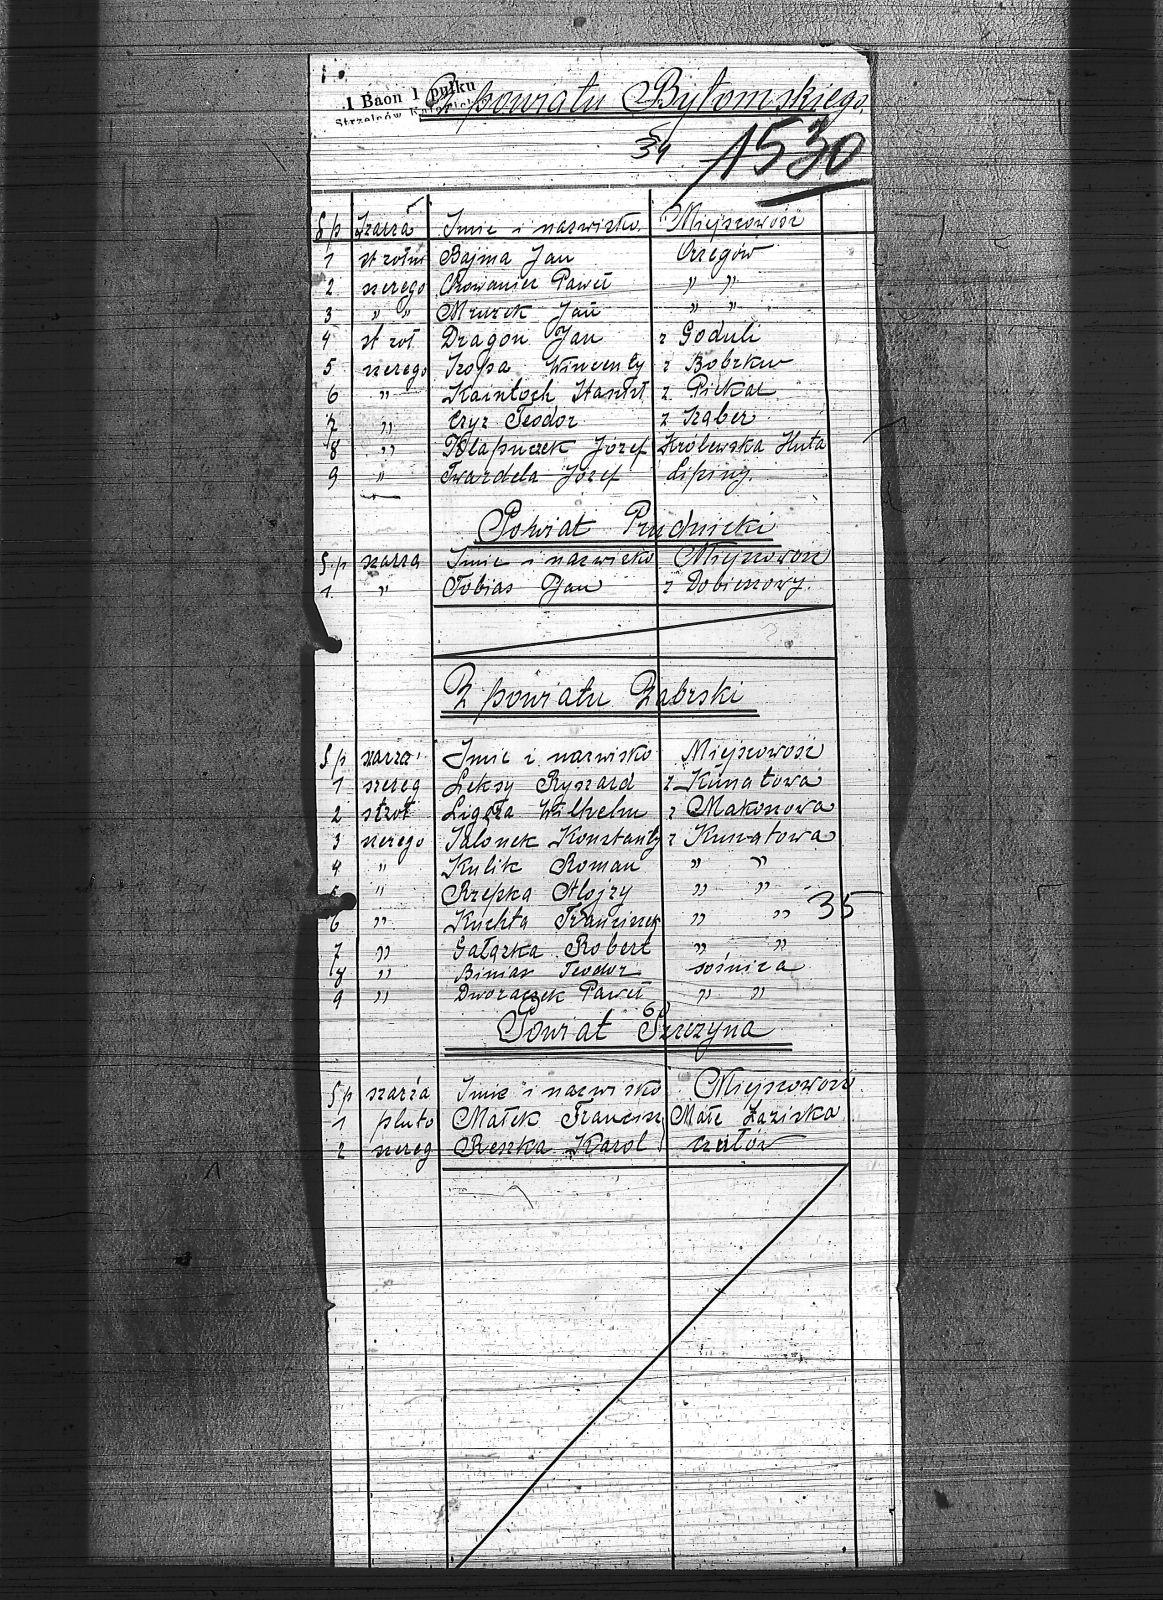 1 Baon 1 pułku
Strzelców
Z powiatu Bytomskiego.
34
1530
Lp szarża Imie i nazwisko Miejscowość
1 st żołn Bajma Jan Orzegów
2 szerego Chowaniec Paweł " "
3 " " Mruzek Jan " "
4 st żoł Dragon Jan z Goduli
5 szerego Wincenty z Bobrku
6 " Kaintoch z Piekar
7 " Czyż Teodor z
8 " Józef Królewska Huta
9 " Twardela Józef Lipiny.
Powiat Prudnicki
Lp szarża Imie i nazwisko Miejscowość
1. " Tobias Jan z
Z powiatu Zabrski
Lp szarża Imie i nazwisko Miejscowość
1 szereg Leksy Ryszard z Kunatowa
2 st żoł Ligęza Wilhelm z Makoszowa
3 szerego Konstanty z Kunatowa
4 " Kulik Roman " "
5 " Rzepka Alojzy " "
35
6 " Kuchta Franciszek " "
7 " Gałązka Robert " "
8 " Binias Teodor sośnica
9 " Dworaczek Paweł " "
Powiat Pszczyna
Lp szarża Imie i nazwisko Miejscowość
1 pluto Małek Francisz Małe Łaziska
2 szereg Reszka Karol